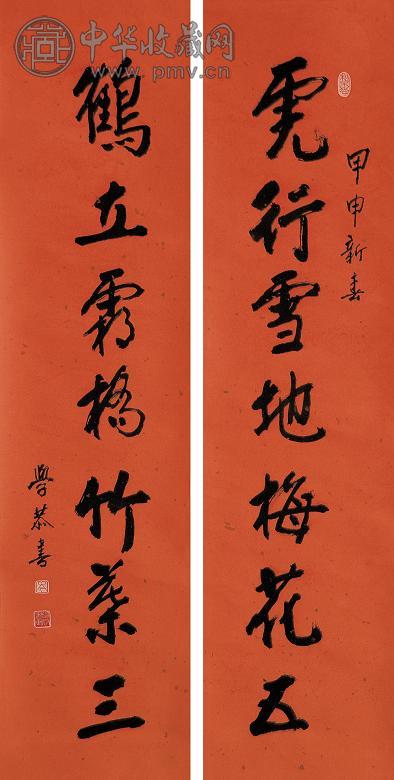 中华收藏网
www.pmv.cn
甲申新春
虎行雪地梅花五
鶴立霜橋竹葉三
學恭書